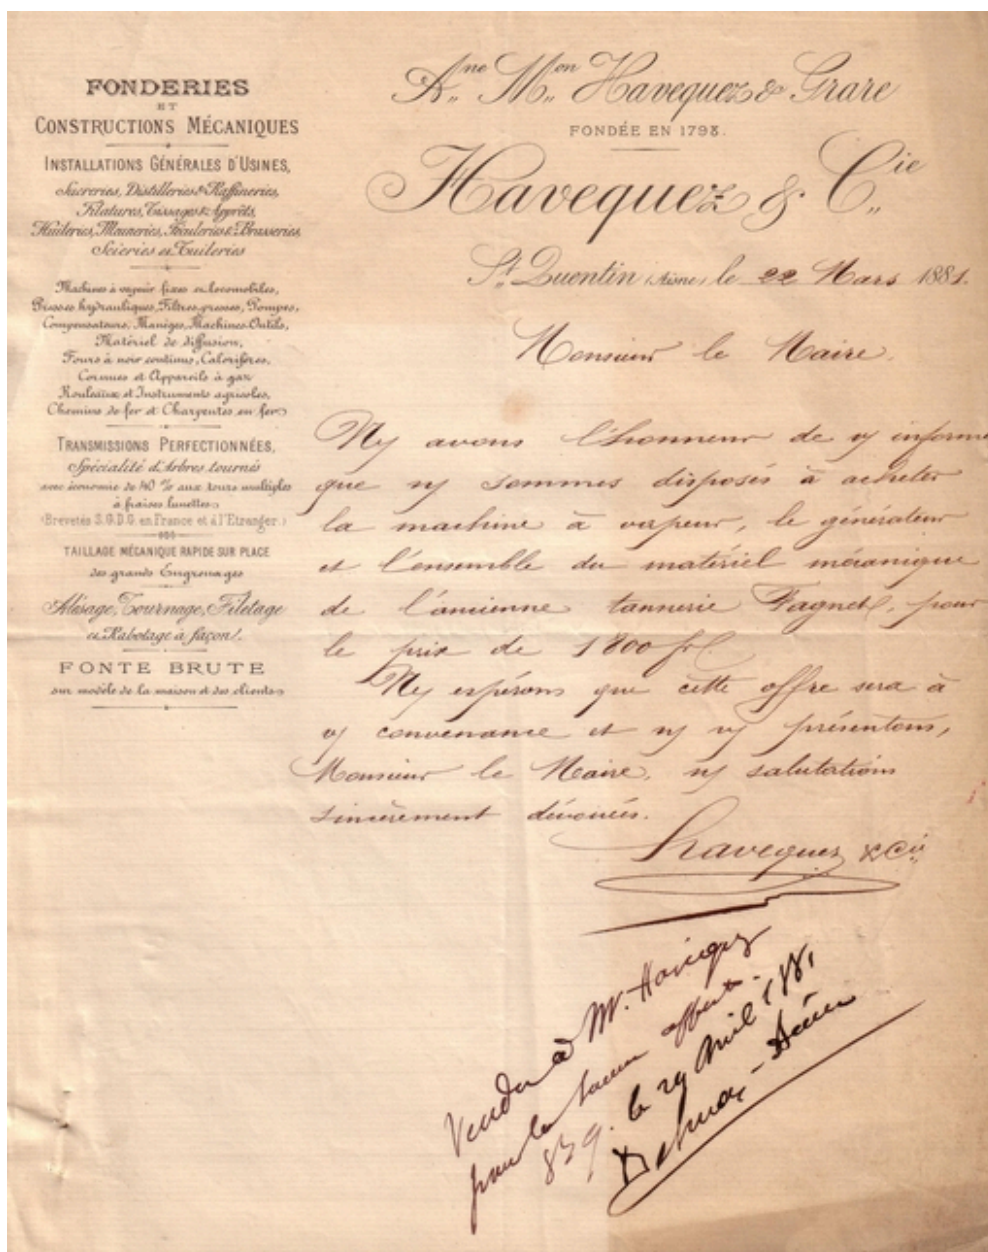 FONDERIES
ET
CONSTRUCTIONS MÉCANIQUES
INSTALLATIONS GÉNÉRALES D'USINES,
Sucreries, Distilleries & Raffineries,
Filatures, Tissages & Apprêts,
Huileries, Meuneries, Féculeries & Brasseries,
Scieries et Tuileries
Machines à vapeur fixes ou locomobiles,
Presses hydrauliques, Filtres-presses, Pompes,
Compensateurs, Manèges, Machines-Outils,
Matériel de diffusion,
Fours à noir continus, Calorifères,
Cornues et Appareils à gaz
Rouleaux et Instruments agricoles,
Chemins de fer et Charpentes en fer
TRANSMISSIONS PERFECTIONNÉES,
Spécialité d'Arbres tournés
avec économie de 40 % aux tours multiples
à fraises lunettes
(Brevetés S.G.D.G. en France et à l'Etranger.)
TAILLAGE MÉCANIQUE RAPIDE SUR PLACE
des grands Engrenages
Alésage, Tournage, Filetage
et Rabotage à façon.
FONTE BRUTE
sur modèle de la maison et des clients
A.ne M.on Havequez & Grare
FONDÉE EN 1798.
Havequez & C.ie
S.t Quentin (Aisne) le 22 Mars 1881.
Monsieur le Maire.
Ns avons l'honneur de vs informer
que ns sommes disposés à acheter
la machine à vapeur, le générateur
et l'ensemble du matériel mécanique
de l'ancienne tannerie Fagnet, pour
le prix de 1800 f
Ns espérons que cette offre sera à
vs convenance et ns vs présentons,
Monsieur le Maire, ns salutations
sincèrement dévouées.
Havequez & Cie
Vendu à Mr. Havequez
pour la somme offerte.
le 29 Avril 1881